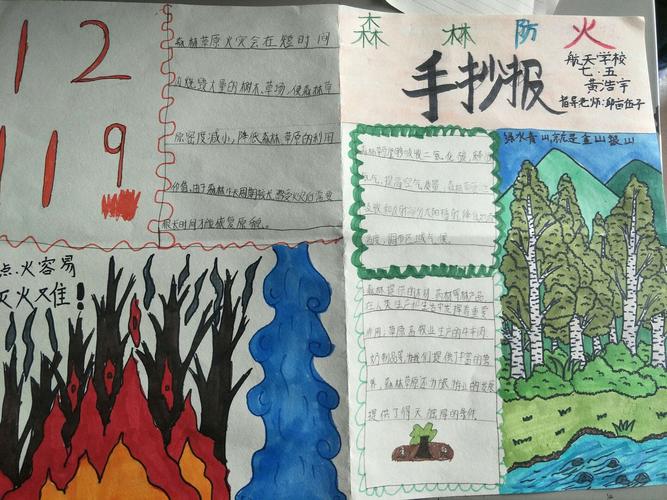 12
119
森林草原火灾会在短时间
内烧毁大量的树木、草场,使森林草
原密度减小,降低森林草原的利用
价值,由于森林生长周期较长,遭受火灾后需要
很长时间才能恢复原貌。
点火容易
灭火又难!
森林防火
手抄报
航天学校
七·五
黄浩宇
指导老师:
绿水青山,就是金山银山
森林草原能够吸收二氧化碳,释放
氧气,提高空气质量,森林
温度,调节区域气候。
森林提供的木材
在人类生产和生活中发挥着重要
作用;草原畜牧业生产的牛羊肉、
奶制品等,为我们提供了丰富的营
养,森林草原还为旅游业的发展
提供了得天独厚的条件。